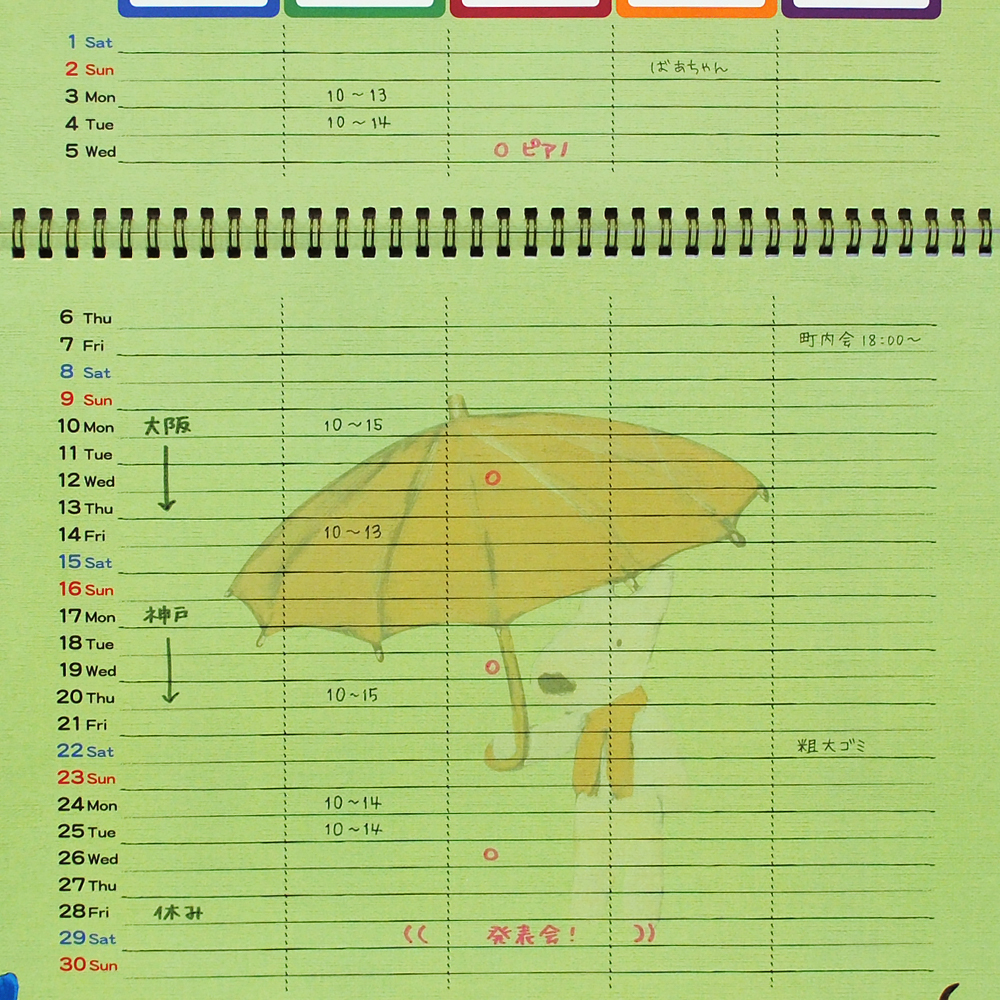 1 Sat
2 Sun ばあちゃん
3 Mon 10～13
4 Tue 10～14
5 Wed ○ ピアノ
6 Thu
7 Fri 町内会 18:00～
8 Sat
9 Sun
10 Mon 大阪 10～15
11 Tue
12 Wed ○
13 Thu
14 Fri 10～13
15 Sat
16 Sun
17 Mon 神戸
18 Tue
19 Wed ○
20 Thu 10～15
21 Fri
22 Sat 粗大ゴミ
23 Sun
24 Mon 10～14
25 Tue 10～14
26 Wed ○
27 Thu
28 Fri 休み
29 Sat (( 発表会! ))
30 Sun